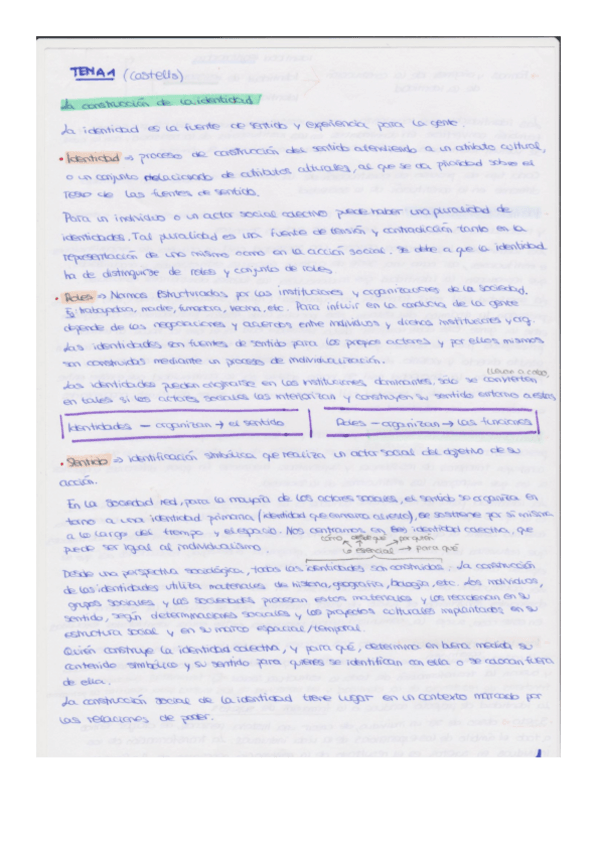 TEMA 1 (Castells)
La construcción de la identidad
La identidad es la fuente de sentido y experiencia para la gente.
• Identidad → proceso de construcción del sentido atendiendo a un atributo cultural,
o un conjunto relacionado de atributos culturales, al que se da prioridad sobre el
resto de las fuentes de sentido.
Para un individuo o un actor social colectivo puede haber una pluralidad de
identidades. Tal pluralidad es una fuente de tensión y contradicción tanto en la
representación de uno mismo como en la acción social. Se debe a que la identidad
ha de distinguirse de roles y conjunto de roles.
• Roles → Normas estructuradas por las instituciones y organizaciones de la sociedad.
Ej: trabajadora, madre, fumadora, vecina, etc. Para influir en la conducta de la gente
depende de las negociaciones y acuerdos entre individuos y dichas instituciones y org.
Las identidades son fuentes de sentido para los propios actores y por ellos mismos
son construidas mediante un proceso de individualización.
(llevar a cabo)
Las identidades pueden originarse en las instituciones dominantes, sólo se convierten
en tales si los actores sociales las interiorizan y construyen su sentido entorno a estas
Identidades — organizan → el sentido
Roles — organizan → las funciones
• Sentido → identificación simbólica que realiza un actor social del objetivo de su
acción.
En la sociedad red, para la mayoría de los actores sociales, el sentido se organiza en
torno a una identidad primaria (identidad que enmarca al resto), se sostiene por si misma
a lo largo del tiempo y el espacio. Nos centramos en identidad colectiva, que
puede ser igual al individualismo.
cómo desde qué por quién
esencial → para qué
Desde una perspectiva sociológica, todas las identidades son construidas. La construcción
de las identidades utiliza materiales de historia, geografía, biología, etc. Los individuos,
grupos sociales y las sociedades procesan estos materiales y los reordenan en su
sentido, según determinaciones sociales y los proyectos culturales implantados en su
estructura social y en su marco espacial/temporal.
Quién construye la identidad colectiva, y para qué, determina en buena medida su
contenido simbólico y su sentido para quienes se identifican con ella o se colocan fuera
de ella.
La construcción social de la identidad tiene lugar en un contexto marcado por
las relaciones de poder.
1